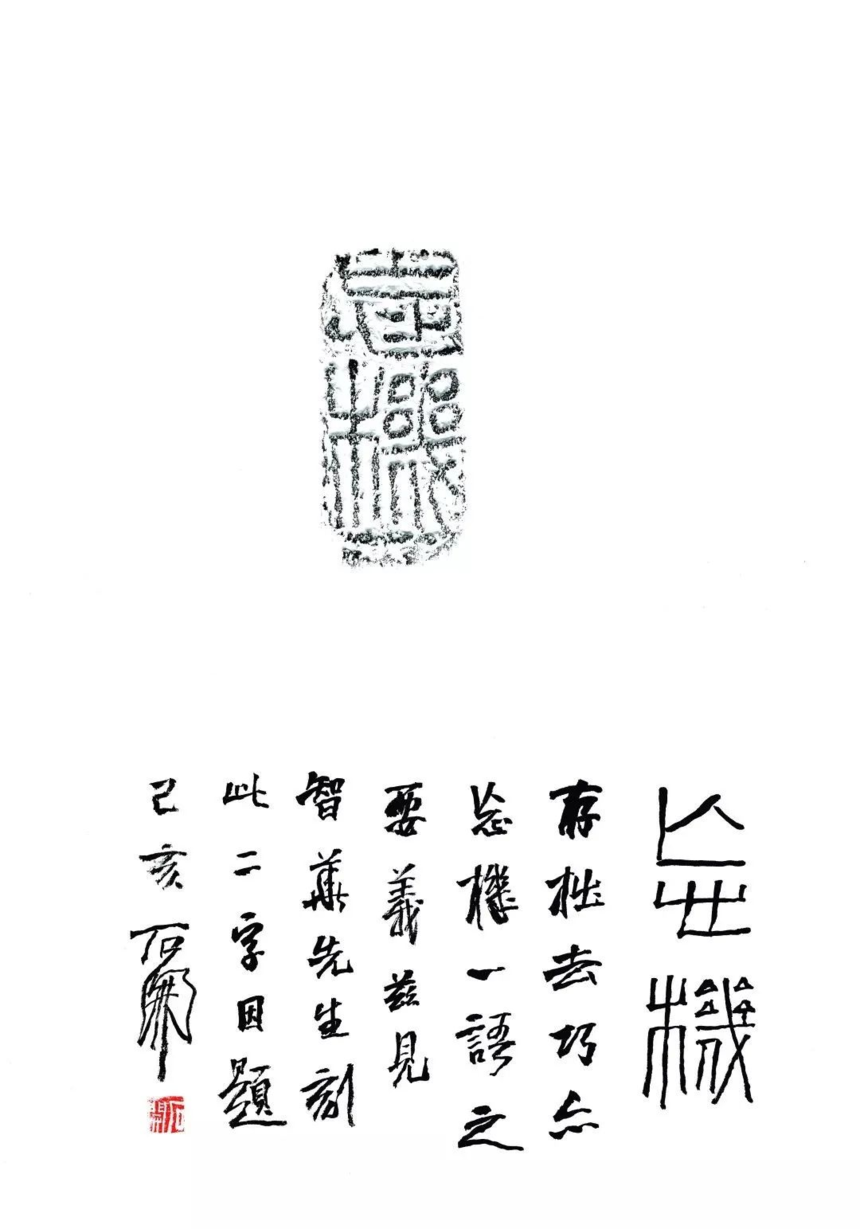 忘機
忘機
存拙去巧亦
忘機一語之
要義茲見
智華先生刻
此二字因題
己亥 石開
石開